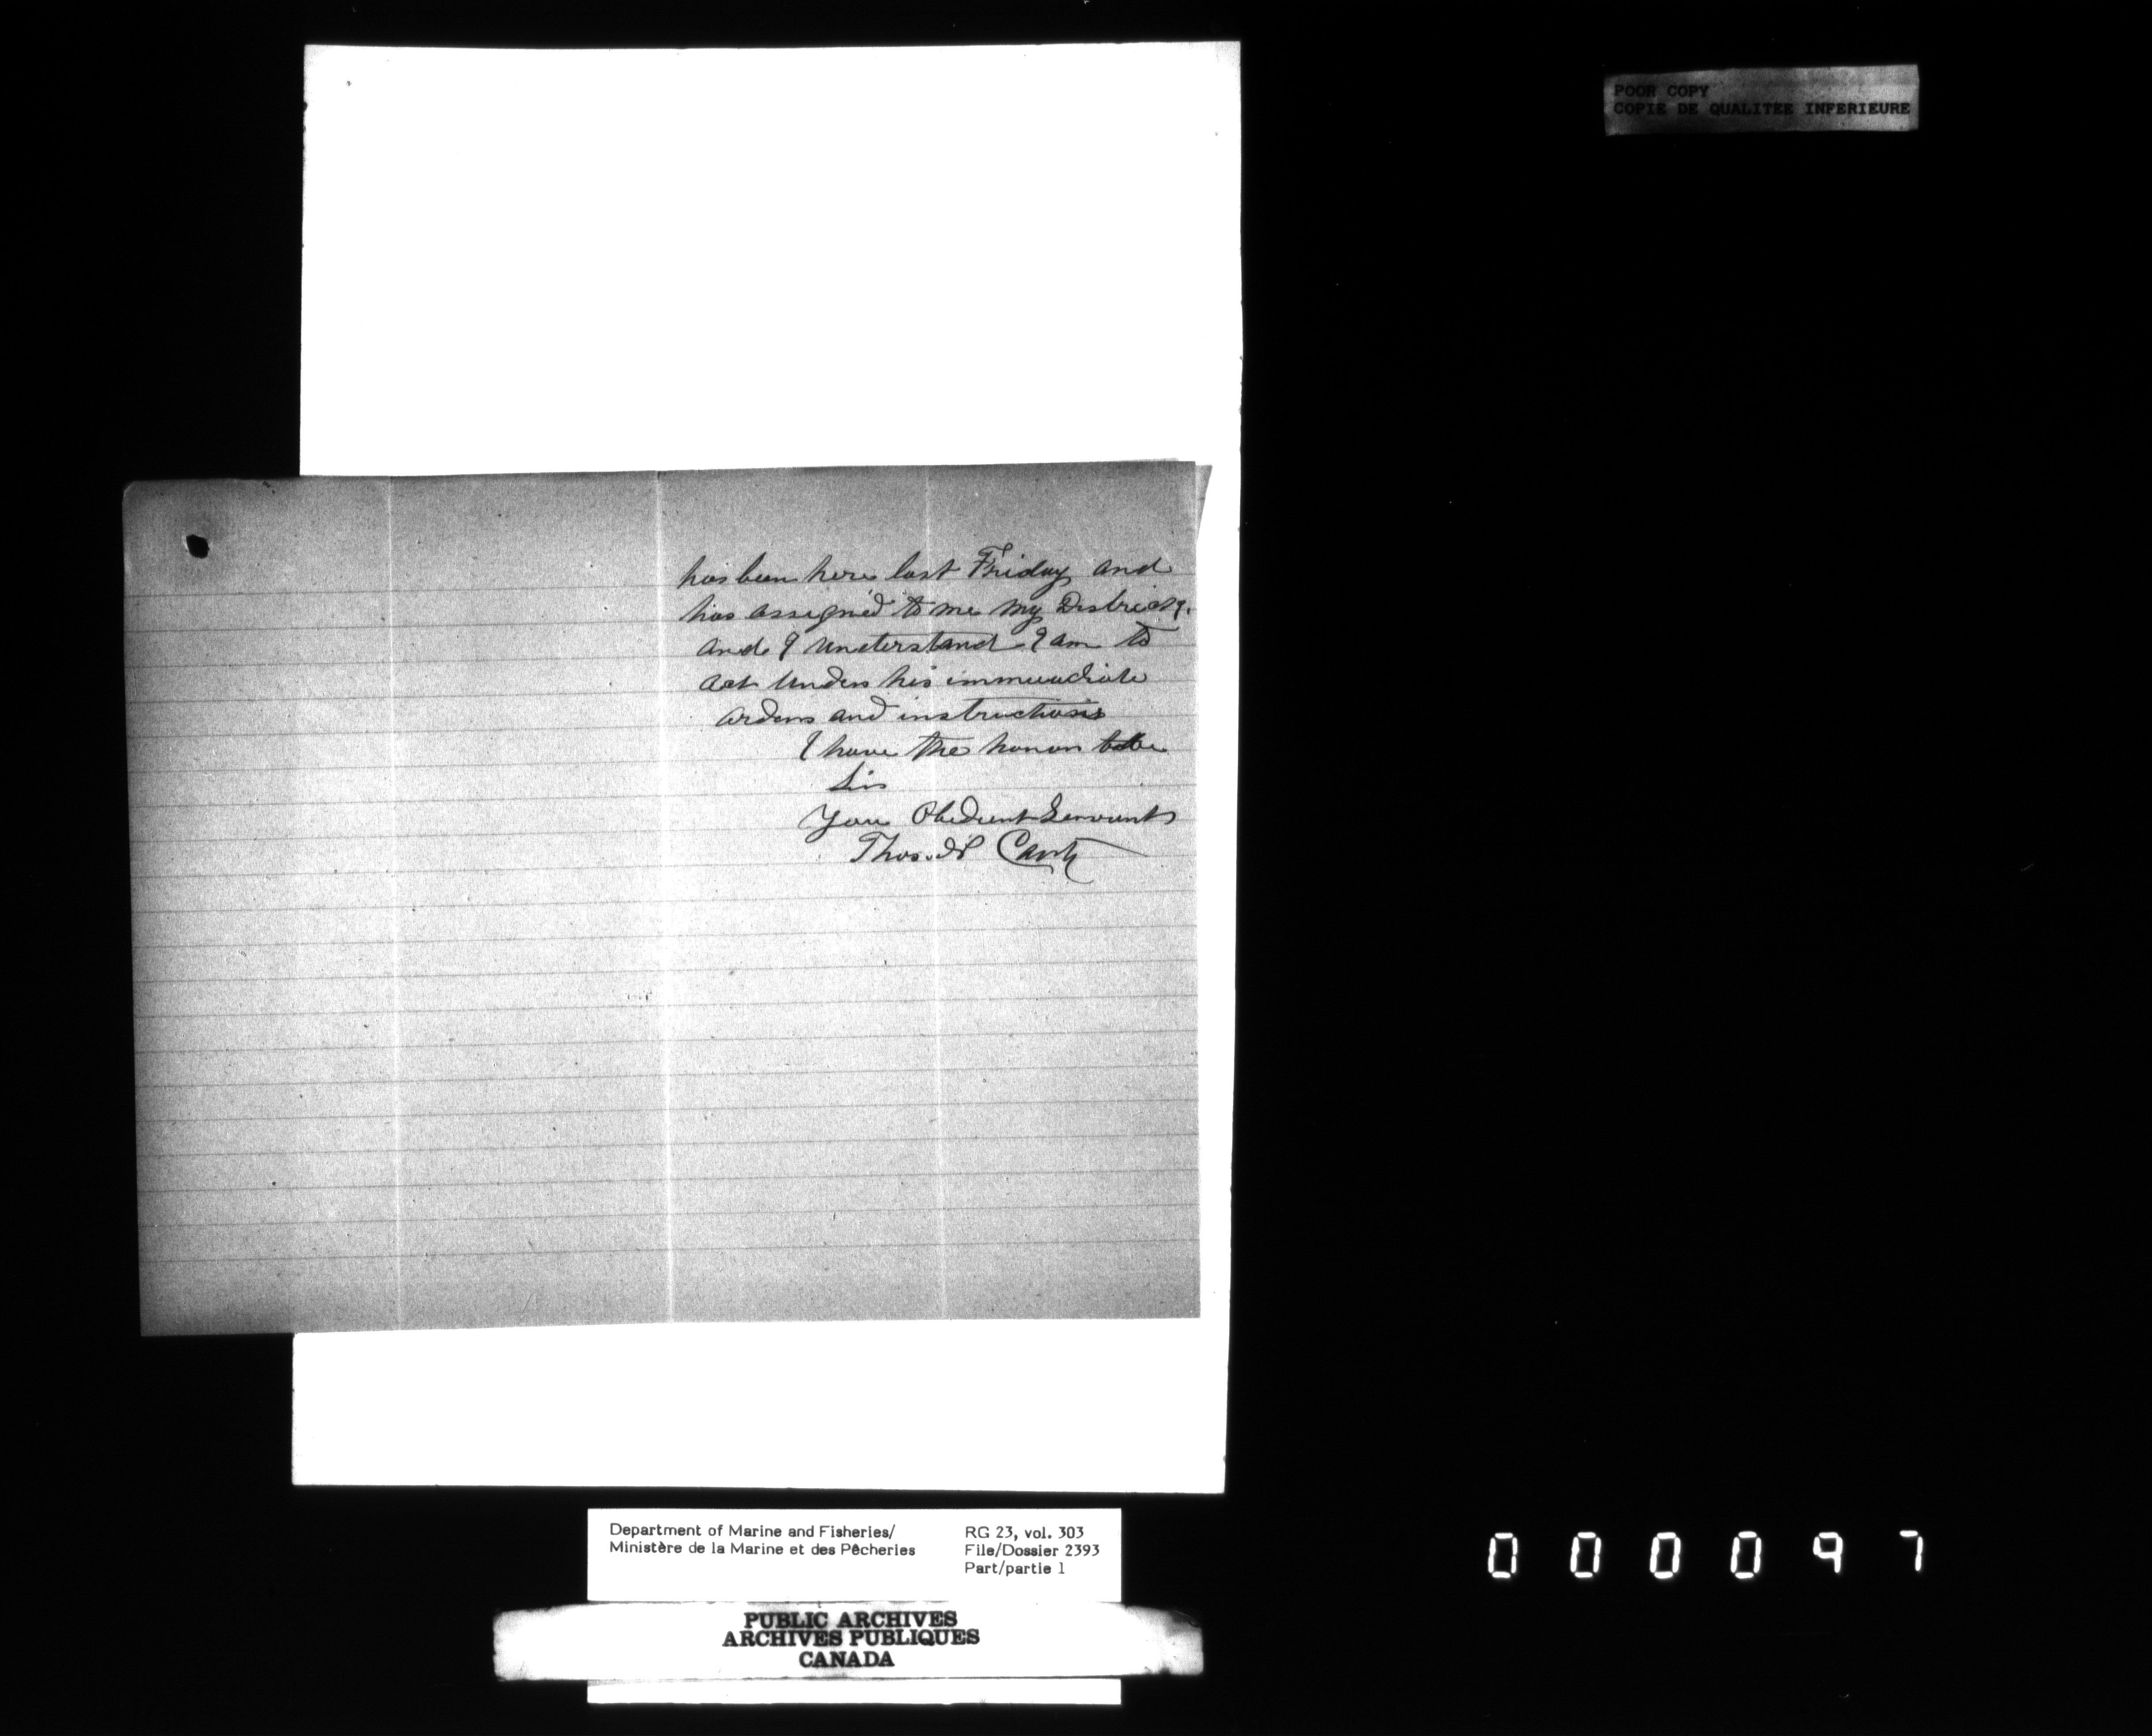 POOR COPY
COPIE DE QUALITEE INFERIEURE
has been here last Friday and
has assigned to me my District,
and I understand I am to
act under his immediate
orders and instructions
I have the honor to be
Sir
Your Obedient Servant
Thos.
Department of Marine and Fisheries/
Ministère de la Marine et des Pêcheries
RG 23, vol. 303
File/Dossier 2393
Part/partie 1
PUBLIC ARCHIVES
ARCHIVES PUBLIQUES
CANADA
000097